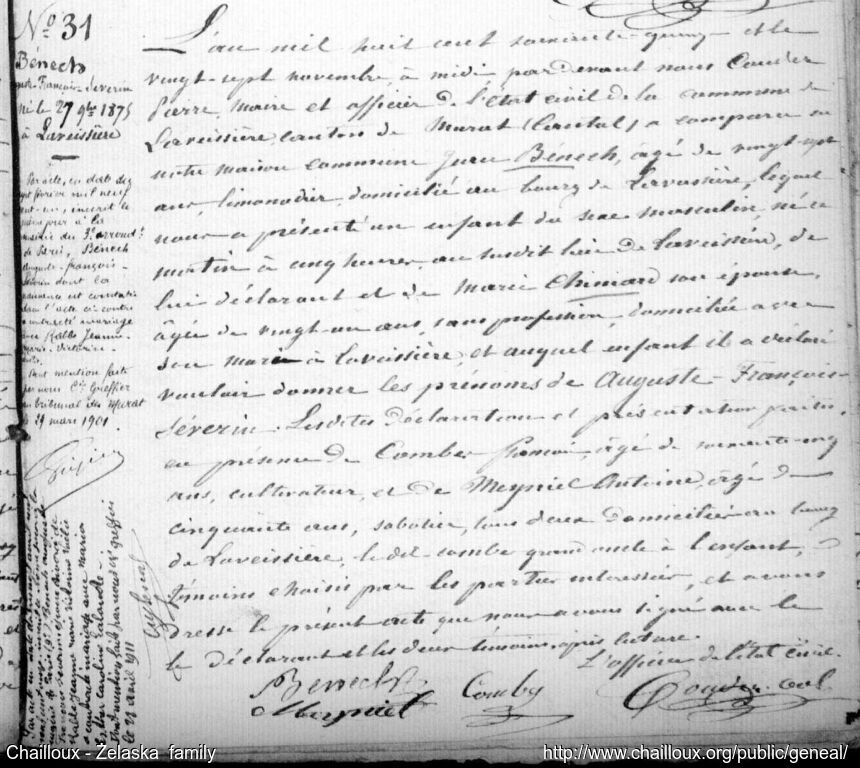 No 31
Bénech
Auguste-François-Séverin
né le 27 9bre 1875
à Laveissière
Par acte, en date du
sept février mil neuf
cent-un, inscrit le
même jour à la
mairie du 3e arrond.t
de Paris, Bénech
Auguste-François-
Séverin dont la
naissance est constatée
dans l'acte ci-contre
a contracté mariage
avec Rabbe Jeanne-
Marie-Victorine-
Dont mention faite
par nous Cis Greffier
du tribunal de Murat
le 29 mars 1901.
a contracté mariage avec Maria
Esther Caroline Lalande-
Dont mention faite par nous cis greffier
le 29 avril 1911
L'an mil huit cent soixante-quinze et le
vingt-sept novembre à midi pardevant nous Couderc
Pierre, Maire et officier de l'état civil de la commune de
Laveissière, canton de Murat (Cantal) a comparu en
notre maison commune Jean Bénech, âgé de vingt-sept
ans, limonadier, domicilié au bourg de Laveissière, lequel
nous a présenté un enfant du sexe masculin, né ce
matin à cinq heures, au susdit lieu de Laveissière, de
lui déclarant et de Marie Chimard son épouse,
âgée de vingt-un ans, sans profession, domiciliée avec
son mari à Laveissière, et auquel enfant il a déclaré
vouloir donner les prénoms de Auguste-François-
Séverin. Lesdites déclaration et présentation faites,
en présence de Combe, âgé de soixante-cinq
ans, cultivateur, et de Meyniel Antoine, âgé de
cinquante ans, sabotier, tous deux domiciliés au bourg
de Laveissière, le dit Combe grand oncle à l'enfant,
témoins choisis par les parties intéressées, et avons
dressé le présent acte que nous avons signé avec le
le déclarant et les deux témoins, après lecture.
L'officier de l'état civil.
Benech Comby
Meyniel Couderc
Chailloux - Zelaska family
http://www.chailloux.org/public/geneal/